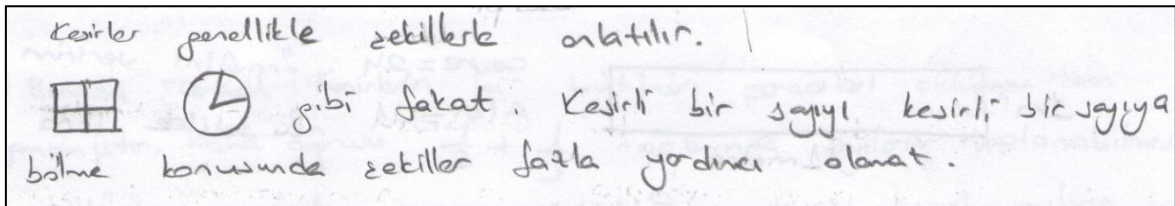 Kesirler genellikle şekillerle anlatılır.
gibi fakat. Kesirli bir sayıyı kesirli bir sayıya
bölme konusunda şekiller fazla yardımcı olamaz.